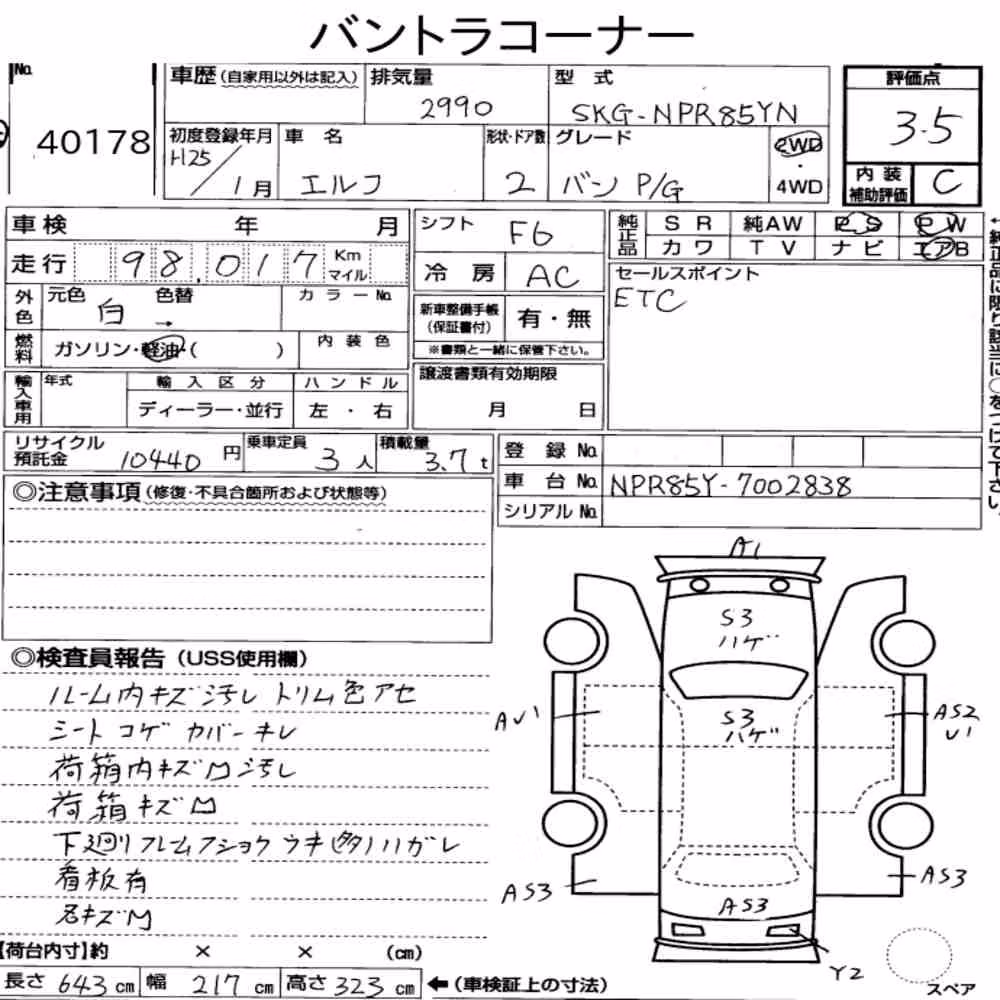 バントラコーナー
No. 40178
車歴 (自家用以外は記入)
排気量 2990
型式 SKG-NPR85YN
評価点 3.5
初度登録年月 H25/1月
車名 エルフ
形状・ドア数 2
グレード バン P/G
2WD・4WD
内装補助評価 C
車検 年 月
シフト F6
純正品 SR 純AW PS PW
カワ TV ナビ エアB
走行 98,017 Km マイル
冷房 AC
セールスポイント
ETC
外色 元色 白 色替 → カラーNo.
新車整備手帳(保証書付) 有・無
※書類と一緒に保管下さい。
燃料 ガソリン・軽油・( )
内装色
輸入車用 年式 輸入区分 ハンドル
ディーラー・並行 左・右
譲渡書類有効期限
月 日
←純正品に限り該当に○をつけて下さい。
リサイクル預託金 10440円
乗車定員 3人
積載量 3.7t
登録No.
車台No. NPR85Y-7002838
シリアルNo.
◎注意事項 (修復・不具合箇所および状態等)
◎検査員報告 (USS使用欄)
ルーム内キズ汚レ トリム色アセ
シートコゲ カバーキレ
荷箱内キズ凹汚レ
荷箱キズ凹
下廻りフレームフショク ウキ(多)ハガレ
看板有
各キズ凹
A1
S3 ハゲ
S3 ハゲ
AU1
AS2 U1
AS3
AS3
AS3
Y2
スペア
【荷台内寸】約 × × (cm)
長さ 643 cm 幅 217 cm 高さ 323 cm ←(車検証上の寸法)